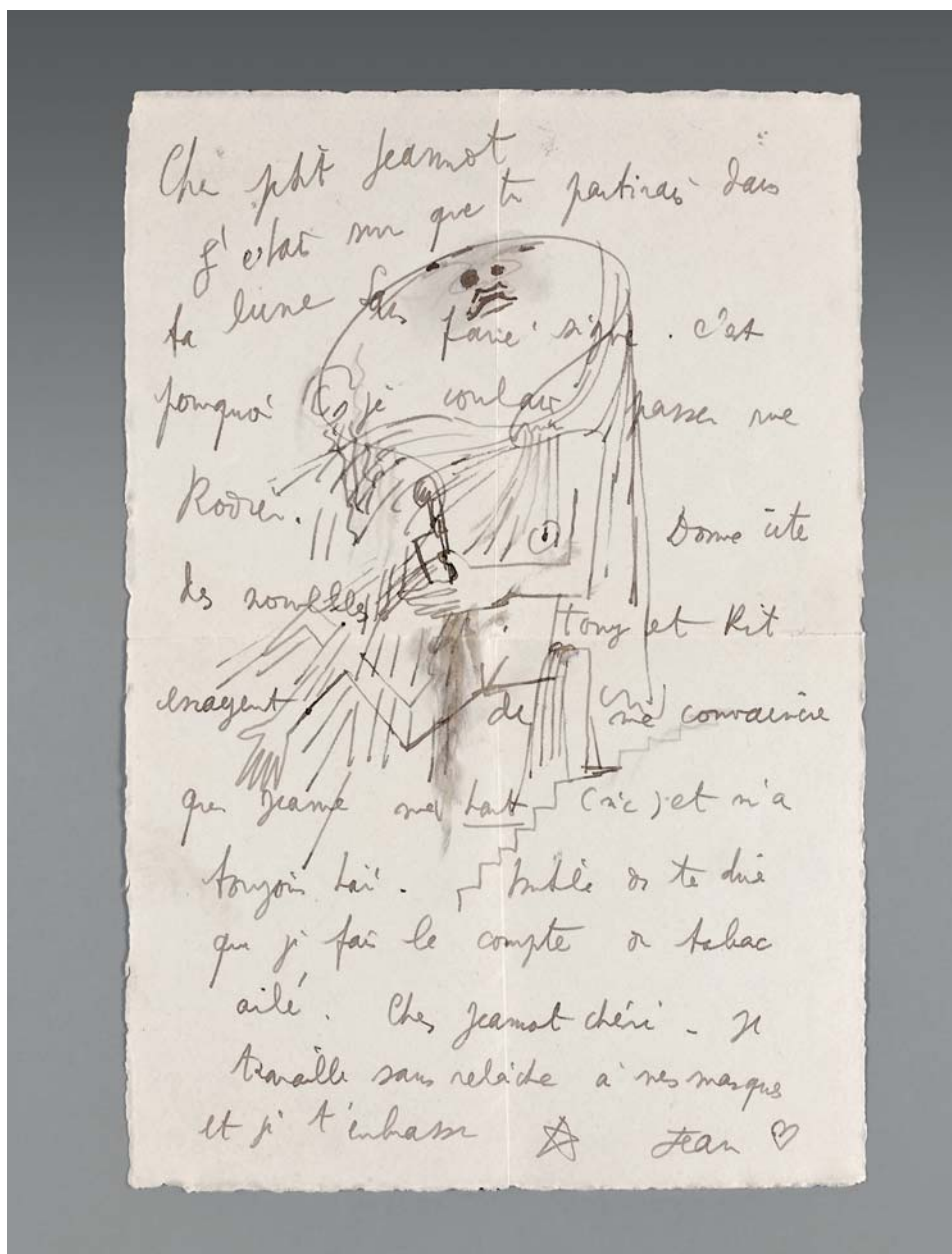 Cher ptit Jeannot
j'etais sur que tu partirais dans
ta lune sans faire signe. c'est
pourquoi je voulais passer rue
Rodier. Donne vite
des nouvelles. Tony et Kit
essayent de me convaincre
que Jeanne me hait (sic) et m'a
toujours haï. Inutile de te dire
que je fais le compte de tabac
ailé. Cher Jeannot chéri - Je
travaille sans relâche à mes masques
et je t'embrasse Jean